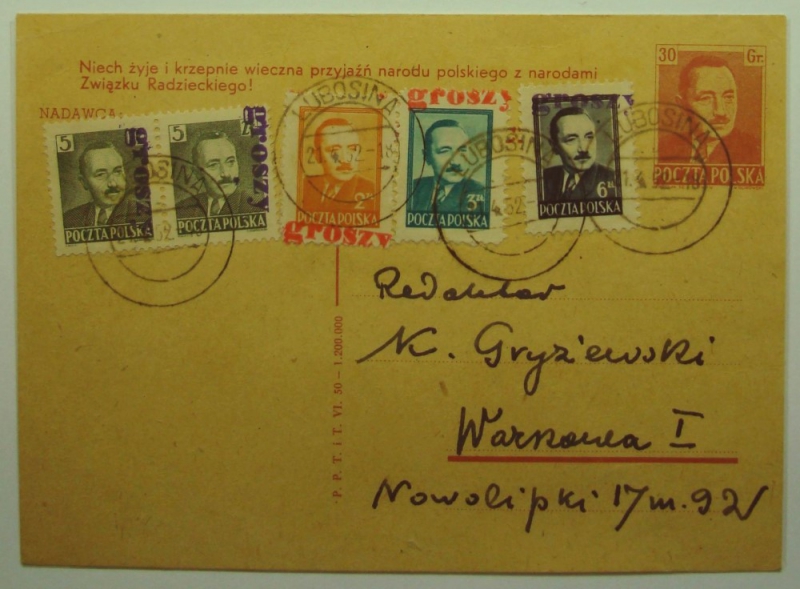 Niech żyje i krzepnie wieczna przyjaźń narodu polskiego z narodami
Związku Radzieckiego!
30 Gr.
POCZTA POLSKA
NADAWCA:
5
POCZTA POLSKA
groszy
5
POCZTA POLSKA
groszy
2
POCZTA POLSKA
groszy
3
POCZTA POLSKA
groszy
6
POCZTA POLSKA
groszy
LUBOSINA
LUBOSINA
LUBOSINA
P. P. T. i T. VI. 50 — 1.200.000
Redaktor
K. Gryżewski
Warszawa I
Nowolipki 17 m. 92